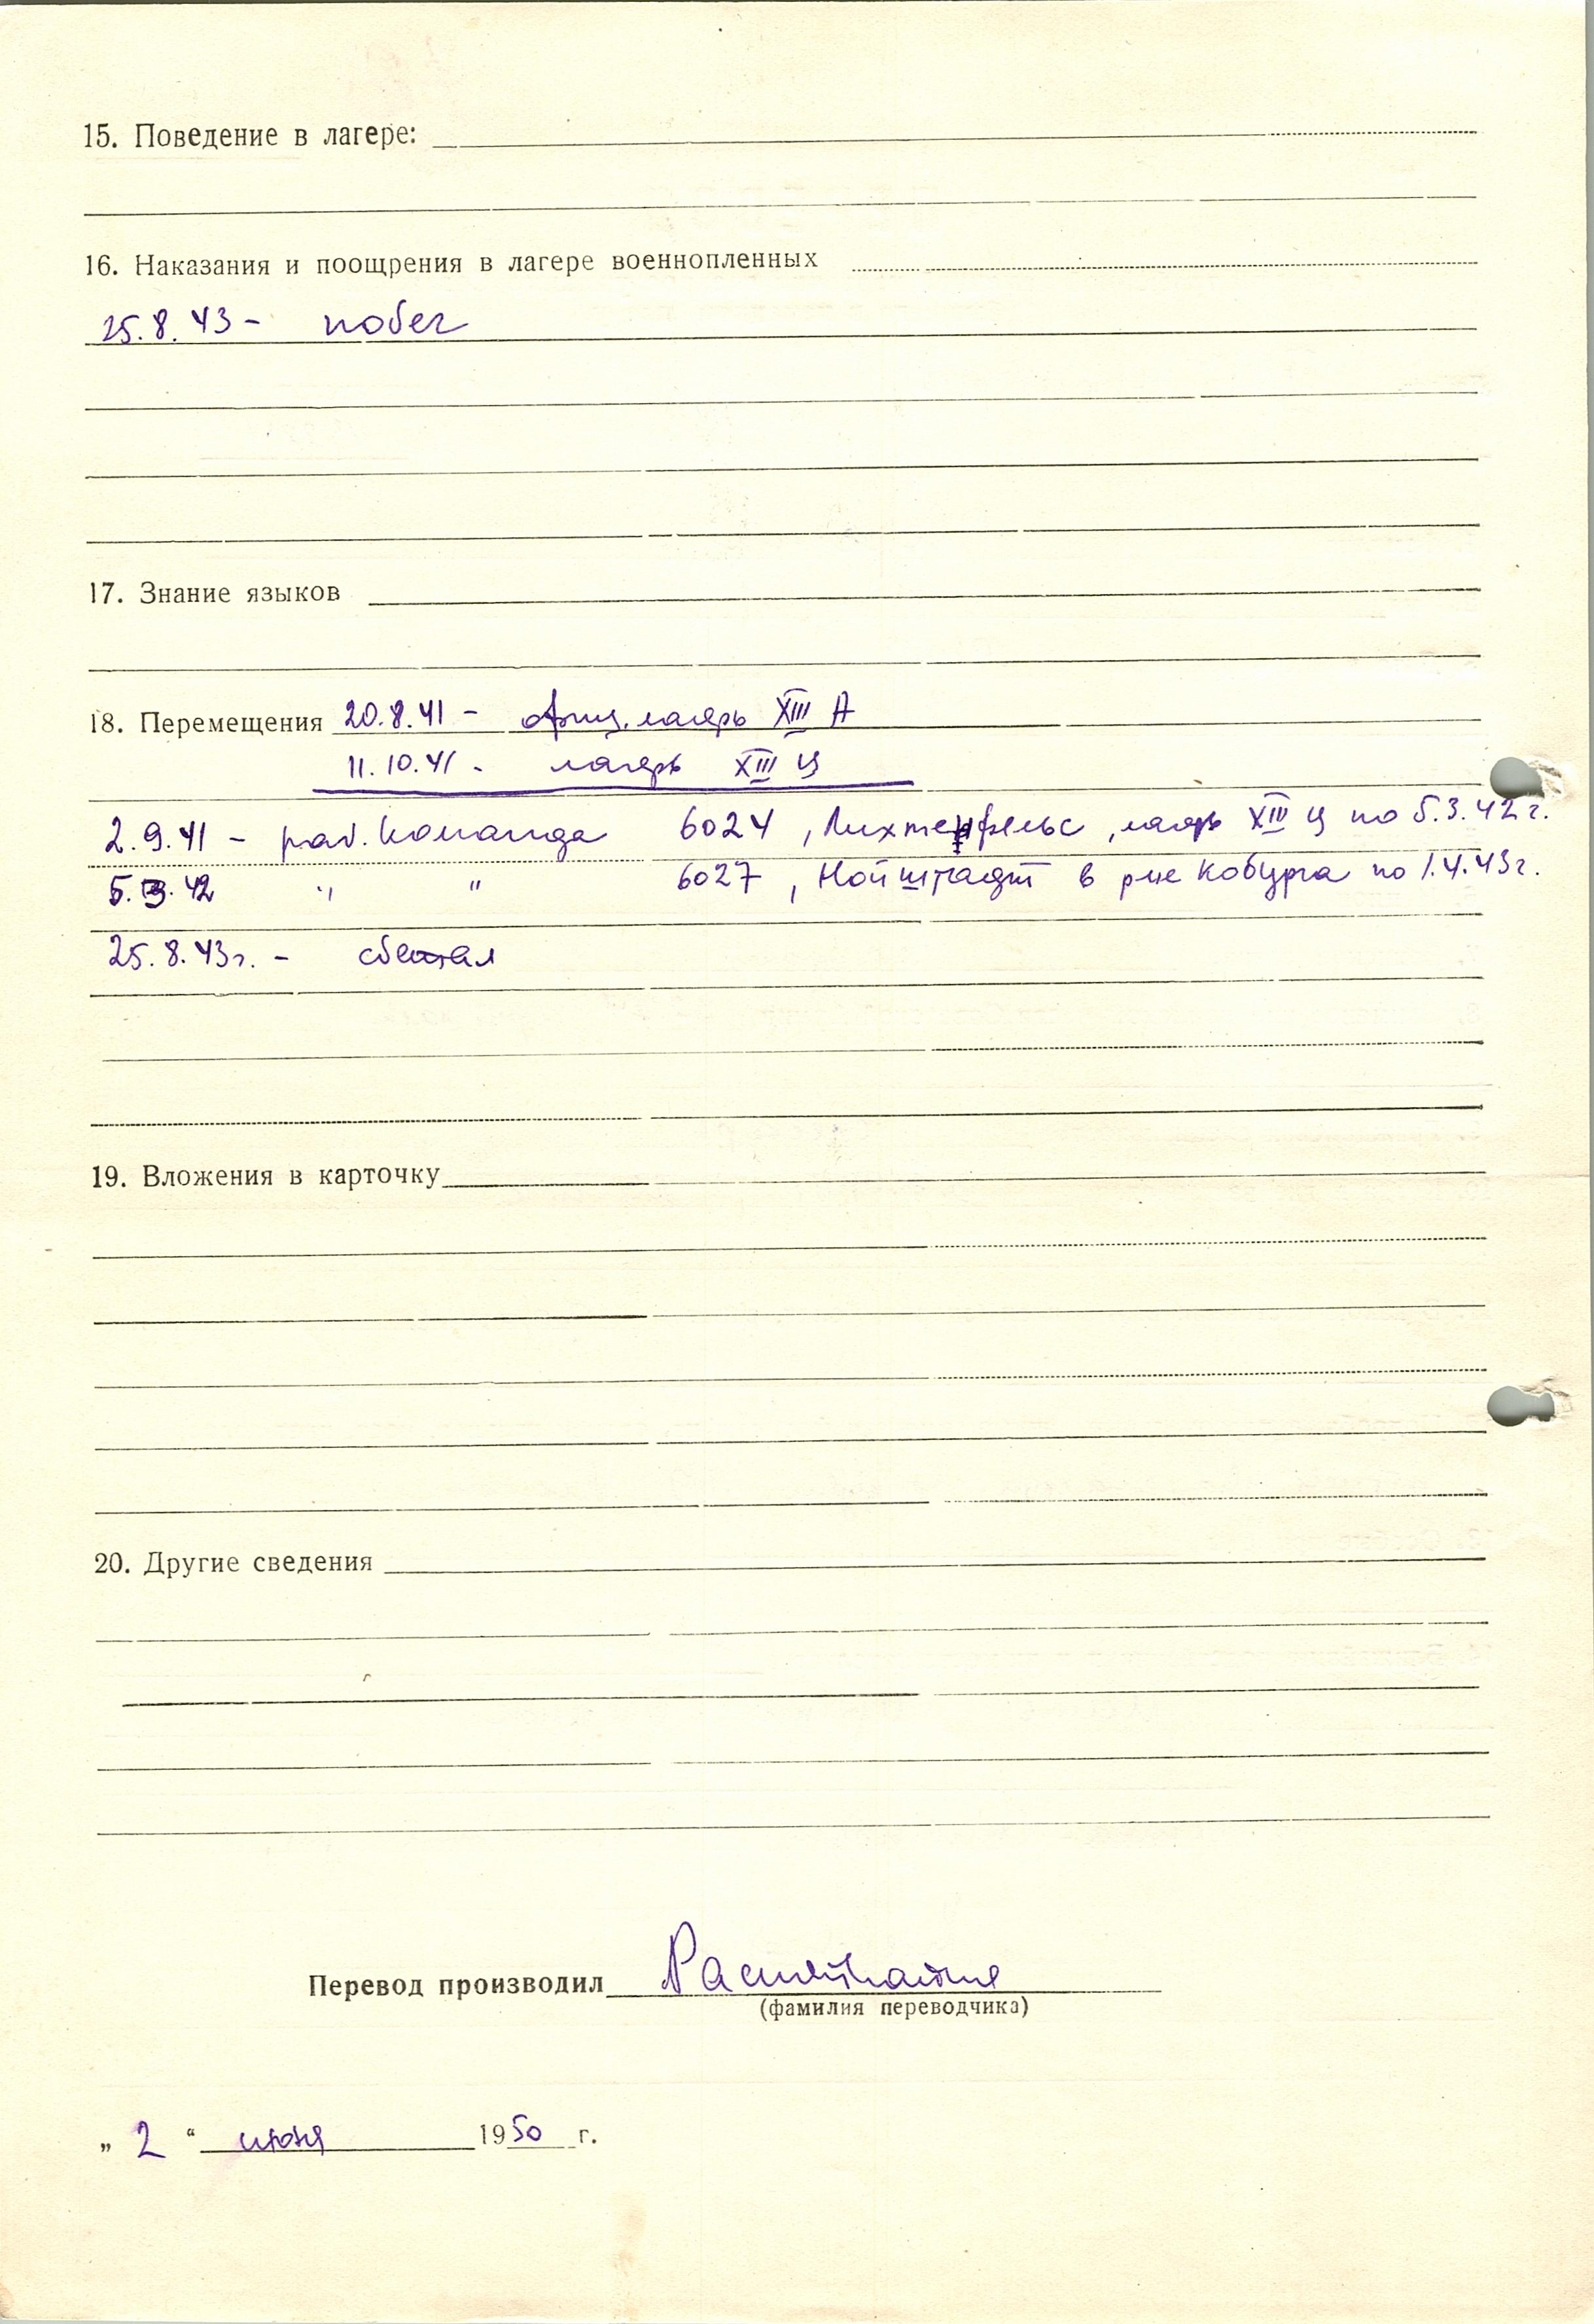 15. Поведение в лагере:
16. Наказания и поощрения в лагере военнопленных
25.8.43 - побег
17. Знание языков
18. Перемещения 20.8.41 - офиц. лагерь XIII А
11.10.41 - лагерь XIII Ц
2.9.41 - раб. команда 6024, Лихтенфельс, лагерь XIII Ц по 5.3.42 г.
5.3.42 " " 6027, Нойштадт в р-не Кобурга по 1.4.43 г.
25.8.43 г. - сбежал
19. Вложения в карточку
20. Другие сведения
Перевод производил
(фамилия переводчика)
„ 2 “ июня 1950 г.